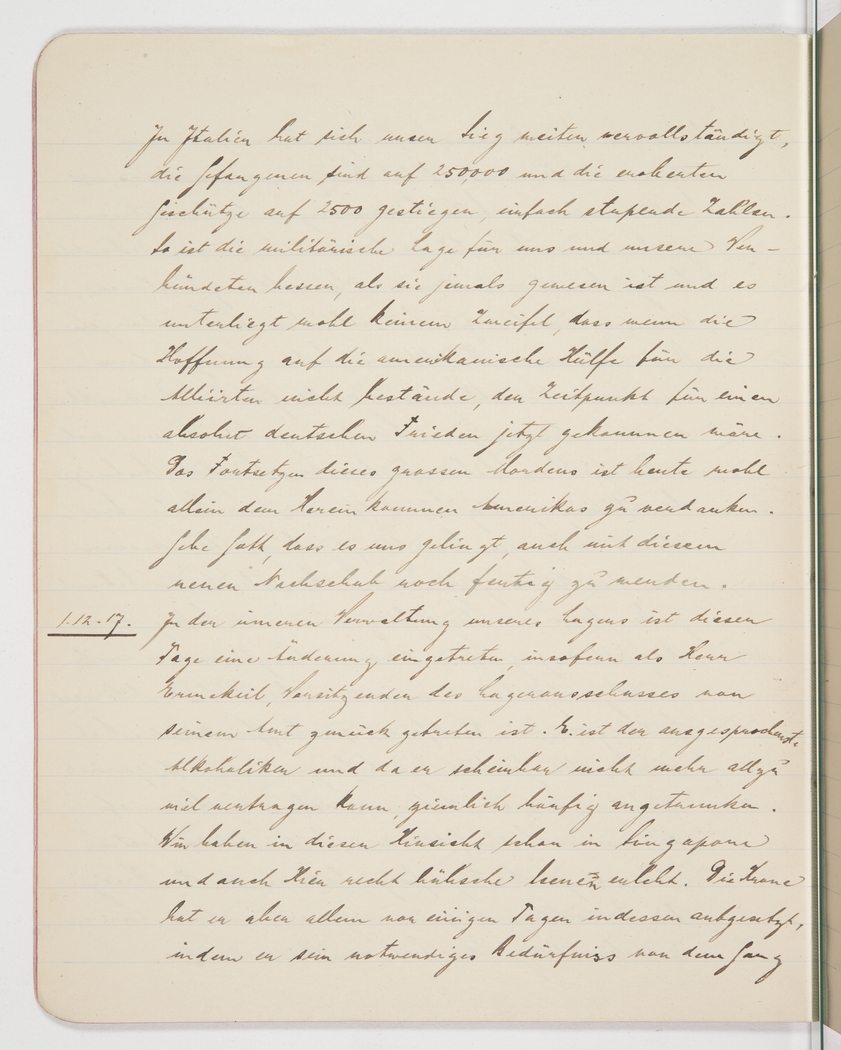 In Italien hat sich unser Sieg weiter vervollständigt,
die Gefangenen sind auf 250,000 und die eroberten
Geschütze auf 2500 gestiegen, einfach stupende Zahlen.
So ist die militärische Lage für uns und unsere Ver-
bündeten besser, als sie jemals gewesen ist und es
unterliegt wohl keinem Zweifel, dass wenn die
Hoffnung auf die amerikanische Hülfe für die
Alliirten nicht bestände, der Zeitpunkt für einen
absolut deutschen Frieden jetzt gekommen wäre.
Das Fortsetzen dieses grossen Mordens ist heute wohl
allein dem Hereinkommen Amerikas zu verdanken.
Gebe Gott, dass es uns gelingt, auch mit diesem
neuen Nachschub noch fertig zu werden.
1.12.17. In der inneren Verwaltung unseres Lagers ist dieser
Tage eine Änderung eingetreten, insofern als Herr
Erinckeil, Vorsitzender des Lagerausschusses von
seinem Amt zurück getreten ist. E. ist der ausgesprochenste
Alkoholiker und da er scheinbar nicht mehr allzu
viel vertragen kann, ziemlich häufig angetrunken.
Wir haben in dieser Hinsicht schon in Singapore
und auch Hier recht hübsche erlebt. Die Krone
hat er aber allem vor einigen Tagen indessen aufgesetzt,
indem er sein notwendiges Bedürfniss von dem Gang